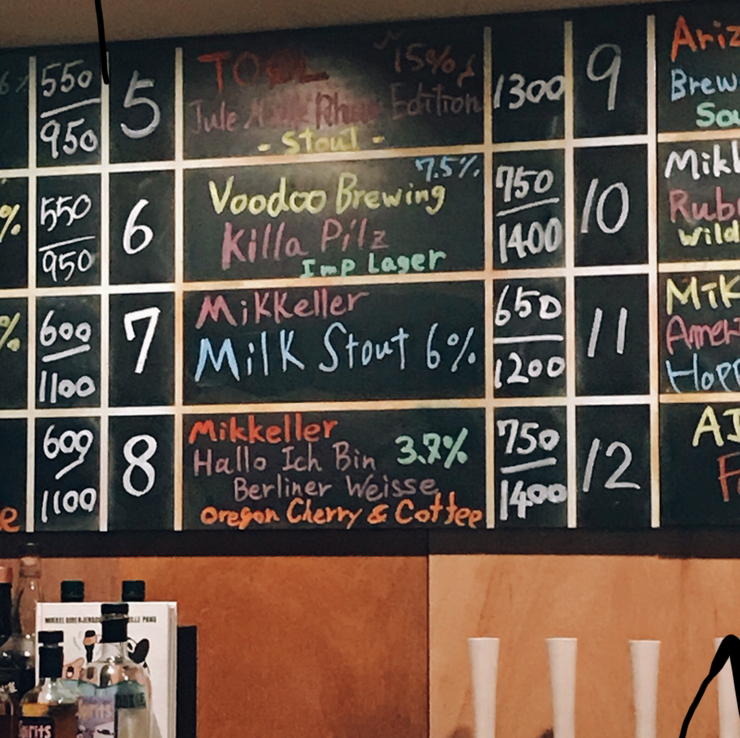 550
950
5
TOOL
15%
Jule Milk Rhum Edition
- Stout -
1300
9
Ariz
Brew
Sou
%
550
950
6
7.5%
Voodoo Brewing
Killa Pilz
Imp Lager
750
1400
10
Mikk
Rub
Wild
%
600
1100
7
Mikkeller
Milk Stout 6%
650
1200
11
Mik
Ameri
Hopp
e
600
1100
8
Mikkeller
Hallo Ich Bin 3.7%
Berliner Weisse
Oregon Cherry & Coffee
750
1400
12
AI
F